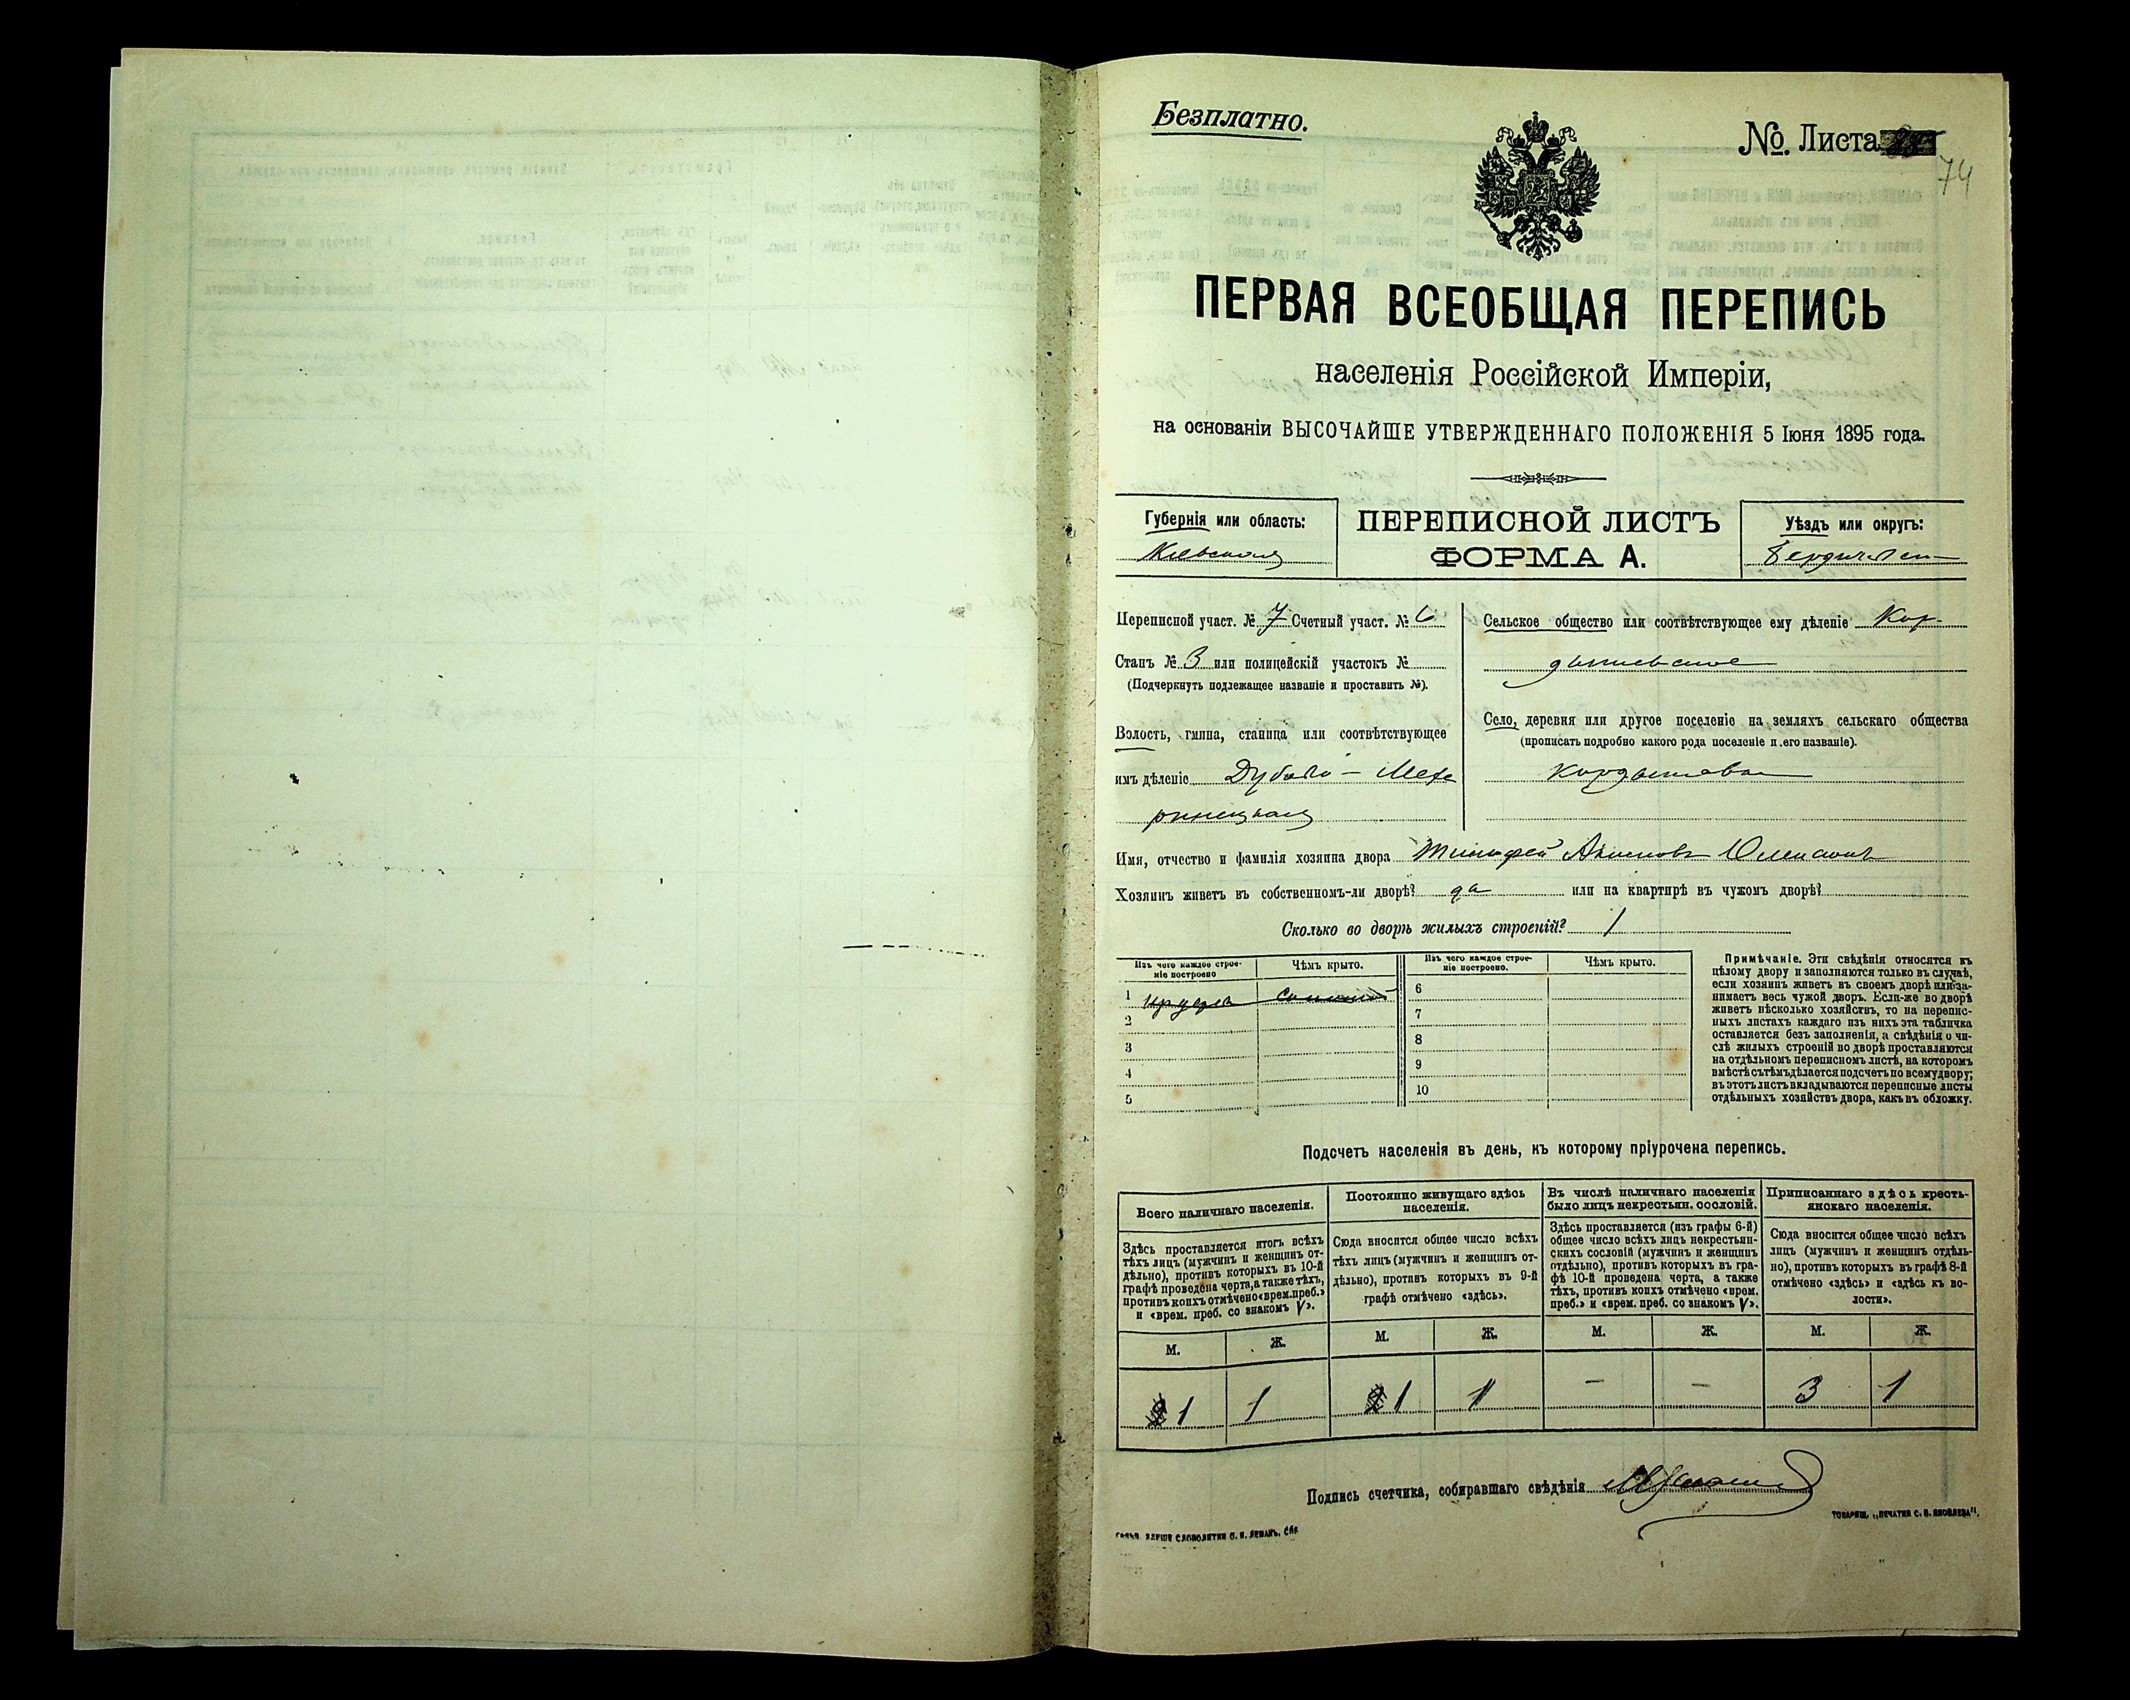 Безплатно.
№. Листа
74
ПЕРВАЯ ВСЕОБЩАЯ ПЕРЕПИСЬ
населенія Россійской Имперіи,
на основаніи ВЫСОЧАЙШЕ УТВЕРЖДЕННАГО ПОЛОЖЕНІЯ 5 Іюня 1895 года.
Губернія или область:
Кіевская
ПЕРЕПИСНОЙ ЛИСТЪ
ФОРМА А.
Уѣздъ или округъ:
Переписной участ. № 7 Счетный участ. № 6
Станъ № 3 или полицейскій участокъ №
(Подчеркнуть подлежащее названіе и проставить №).
Волость, гмина, станица или соотвѣтствующее
имъ дѣленіе Дубово - Меже
ринецкая
Сельское общество или соотвѣтствующее ему дѣленіе Кор-
дышевское
Село, деревня или другое поселеніе на земляхъ сельскаго общества
(прописать подробно какого рода поселеніе и его названіе).
Кордышовка
Имя, отчество и фамилія хозяина двора Тимофей
Хозяинъ живетъ въ собственномъ-ли дворѣ? да или на квартирѣ въ чужомъ дворѣ?
Сколько во дворѣ жилыхъ строеній? 1
Изъ чего каждое строе-
ніе построено
Чѣмъ крыто.
Изъ чего каждое строе-
ніе построено.
Чѣмъ крыто.
1
2
3
4
5
6
7
8
9
10
Примѣчаніе. Эти свѣдѣнія относятся къ
цѣлому двору и заполняются только въ случаѣ,
если хозяинъ живетъ въ своемъ дворѣ или за-
нимаетъ весь чужой дворъ. Если-же во дворѣ
живетъ нѣсколько хозяйствъ, то на перепис-
ныхъ листахъ каждаго изъ нихъ эта табличка
оставляется безъ заполненія, а свѣдѣнія о чи-
слѣ жилыхъ строеній во дворѣ проставляются
на отдѣльномъ переписномъ листѣ, на которомъ
вмѣстѣ съ тѣмъ дѣлается подсчетъ по всему двору;
въ этотъ листъ вкладываются переписные листы
отдѣльныхъ хозяйствъ двора, какъ въ обложку.
Подсчетъ населенія въ день, къ которому пріурочена перепись.
Всего наличнаго населенія.
Здѣсь проставляется итогъ всѣхъ
тѣхъ лицъ (мужчинъ и женщинъ от-
дѣльно), противъ которыхъ въ 10-й
графѣ проведена черта, а также тѣхъ,
противъ коихъ отмѣчено «врем. преб.»
и «врем. преб. со знакомъ V».
М.
Ж.
1
1
Постоянно живущаго здѣсь
населенія.
Сюда вносится общее число всѣхъ
тѣхъ лицъ (мужчинъ и женщинъ от-
дѣльно), противъ которыхъ въ 9-й
графѣ отмѣчено «здѣсь».
М.
Ж.
1
1
Въ числѣ наличнаго населенія
было лицъ некрестьян. сословій.
Здѣсь проставляется (изъ графы 6-й)
общее число всѣхъ лицъ некрестьян-
скихъ сословій (мужчинъ и женщинъ
отдѣльно), противъ которыхъ въ гра-
фѣ 10-й проведена черта, а также
тѣхъ, противъ коихъ отмѣчено «врем.
преб.» и «врем. преб. со знакомъ V».
М.
Ж.
—
—
Приписаннаго здѣсь кресть-
янскаго населенія.
Сюда вносится общее число всѣхъ
лицъ (мужчинъ и женщинъ отдѣль-
но), противъ которыхъ въ графѣ 8-й
отмѣчено «здѣсь» и «здѣсь къ во-
лости».
М.
Ж.
3
1
Подпись счетчика, собиравшаго свѣдѣнія
ТОВАРИЩ. „ПЕЧАТНЯ С. П. ЯКОВЛЕВА".